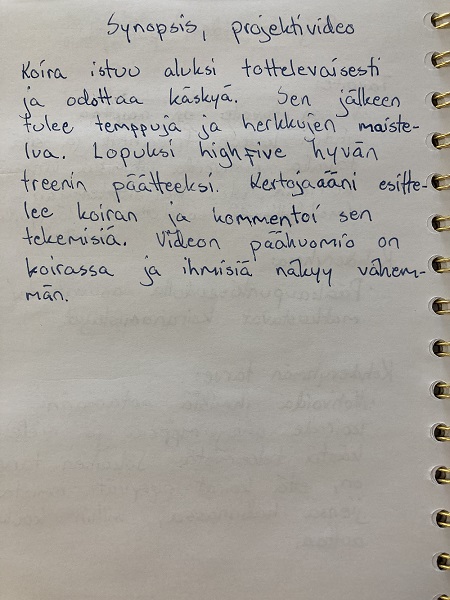 Synopsis, projektivideo
Koira istuu aluksi tottelevaisesti
ja odottaa käskyä. Sen jälkeen
tulee temppuja ja herkkujen maiste-
lua. Lopuksi highfive hyvän
treenin päätteeksi. Kertojaääni esitte-
lee koiran ja kommentoi sen
tekemisiä. Videon päähuomio on
koirassa ja ihmisiä näkyy vähem-
män.